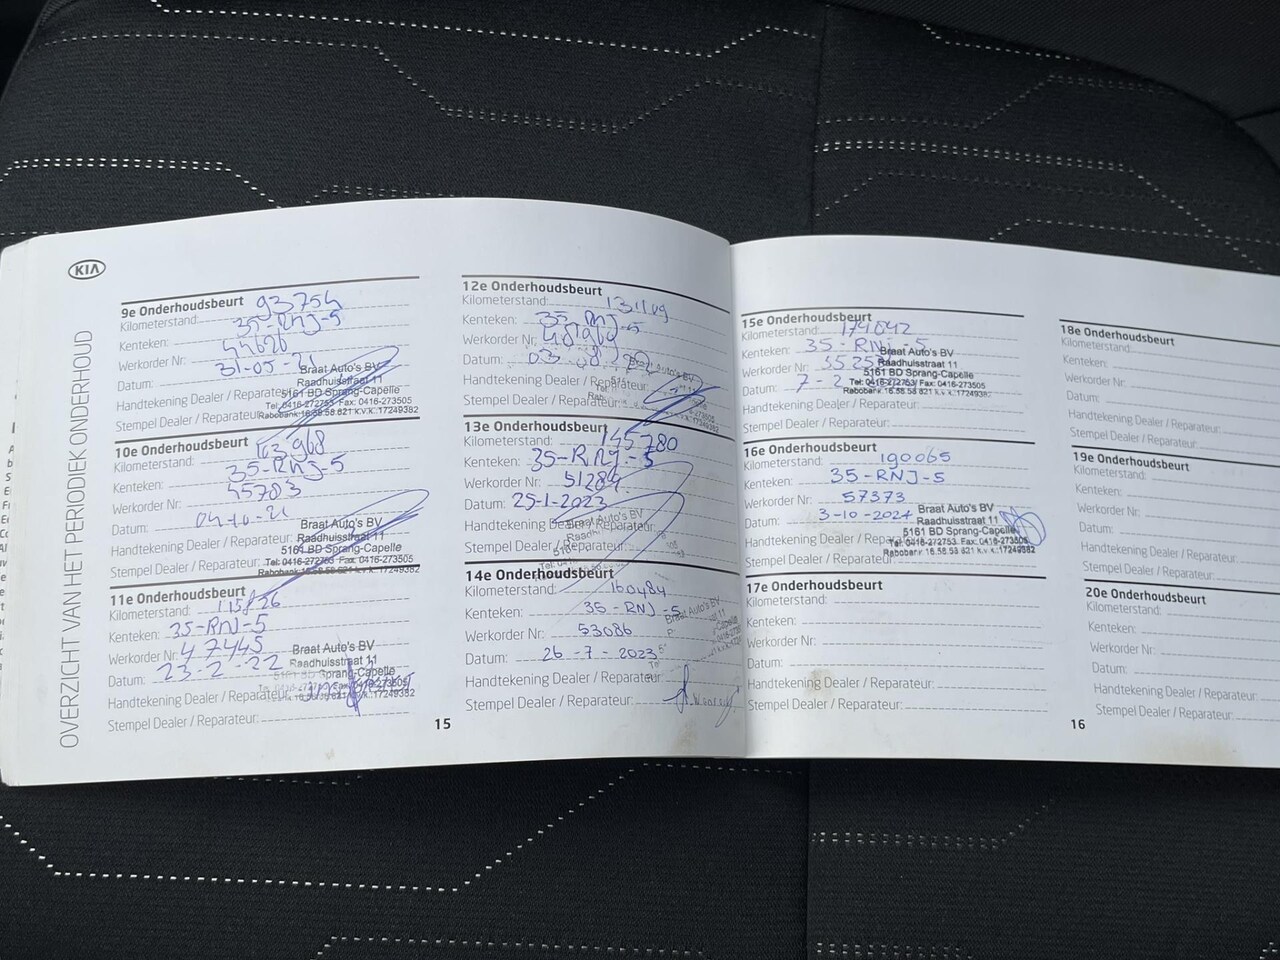 KIA
OVERZICHT VAN HET PERIODIEK ONDERHOUD
9e Onderhoudsbeurt
Kilometerstand: 93754
Kenteken: 35-RNJ-5
Werkorder Nr: 44626
Datum: 31-05-21
Handtekening Dealer / Reparateur:
Stempel Dealer / Reparateur:
Braat Auto's BV
Raadhuisstraat 11
5161 BD Sprang-Capelle
Tel: 0416-272753 Fax: 0416-273505
Rabobank 16.58.58.621 k.v.k.:17249382
10e Onderhoudsbeurt
Kilometerstand: 103968
Kenteken: 35-RNJ-5
Werkorder Nr: 45783
Datum: 04-10-21
Handtekening Dealer / Reparateur:
Stempel Dealer / Reparateur:
Braat Auto's BV
Raadhuisstraat 11
5161 BD Sprang-Capelle
Tel: 0416-272753 Fax: 0416-273505
Rabobank 16.58.58.621 k.v.k.:17249382
11e Onderhoudsbeurt
Kilometerstand: 115826
Kenteken: 35-RNJ-5
Werkorder Nr: 47445
Datum: 23-2-22
Handtekening Dealer / Reparateur:
Stempel Dealer / Reparateur:
Braat Auto's BV
Raadhuisstraat 11
5161 BD Sprang-Capelle
15
12e Onderhoudsbeurt
Kilometerstand:
Kenteken: 35-RNJ-5
Werkorder Nr:
Datum: 03
Handtekening Dealer / Reparateur:
Stempel Dealer / Reparateur:
13e Onderhoudsbeurt
Kilometerstand: 145780
Kenteken: 35-RNJ-5
Werkorder Nr: 51284
Datum: 25-1-2023
Handtekening Dealer / Reparateur:
Stempel Dealer / Reparateur:
14e Onderhoudsbeurt
Kilometerstand: 160484
Kenteken: 35-RNJ-5
Werkorder Nr: 53086
Datum: 26-7-2023
Handtekening Dealer / Reparateur:
Stempel Dealer / Reparateur:
15e Onderhoudsbeurt
Kilometerstand: 174042
Kenteken: 35-RNJ-5
Werkorder Nr:
Datum: 7-2
Handtekening Dealer / Reparateur:
Stempel Dealer / Reparateur:
Braat Auto's BV
Raadhuisstraat 11
5161 BD Sprang-Capelle
Tel: 0416-272753 Fax: 0416-273505
Rabobank 16.58.58.621 k.v.k.:17249382
16e Onderhoudsbeurt
Kilometerstand: 190065
Kenteken: 35-RNJ-5
Werkorder Nr: 57373
Datum: 3-10-2024
Handtekening Dealer / Reparateur:
Stempel Dealer / Reparateur:
Braat Auto's BV
Raadhuisstraat 11
5161 BD Sprang-Capelle
Tel: 0416-272753 Fax: 0416-273505
Rabobank 16.58.58.621 k.v.k.:17249382
17e Onderhoudsbeurt
Kilometerstand:
Kenteken:
Werkorder Nr:
Datum:
Handtekening Dealer / Reparateur:
Stempel Dealer / Reparateur:
16
18e Onderhoudsbeurt
Kilometerstand:
Kenteken:
Werkorder Nr:
Datum:
Handtekening Dealer / Reparateur:
Stempel Dealer / Reparateur:
19e Onderhoudsbeurt
Kilometerstand:
Kenteken:
Werkorder Nr:
Datum:
Handtekening Dealer / Reparateur:
Stempel Dealer / Reparateur:
20e Onderhoudsbeurt
Kilometerstand:
Kenteken:
Werkorder Nr:
Datum:
Handtekening Dealer / Reparateur:
Stempel Dealer / Reparateur: